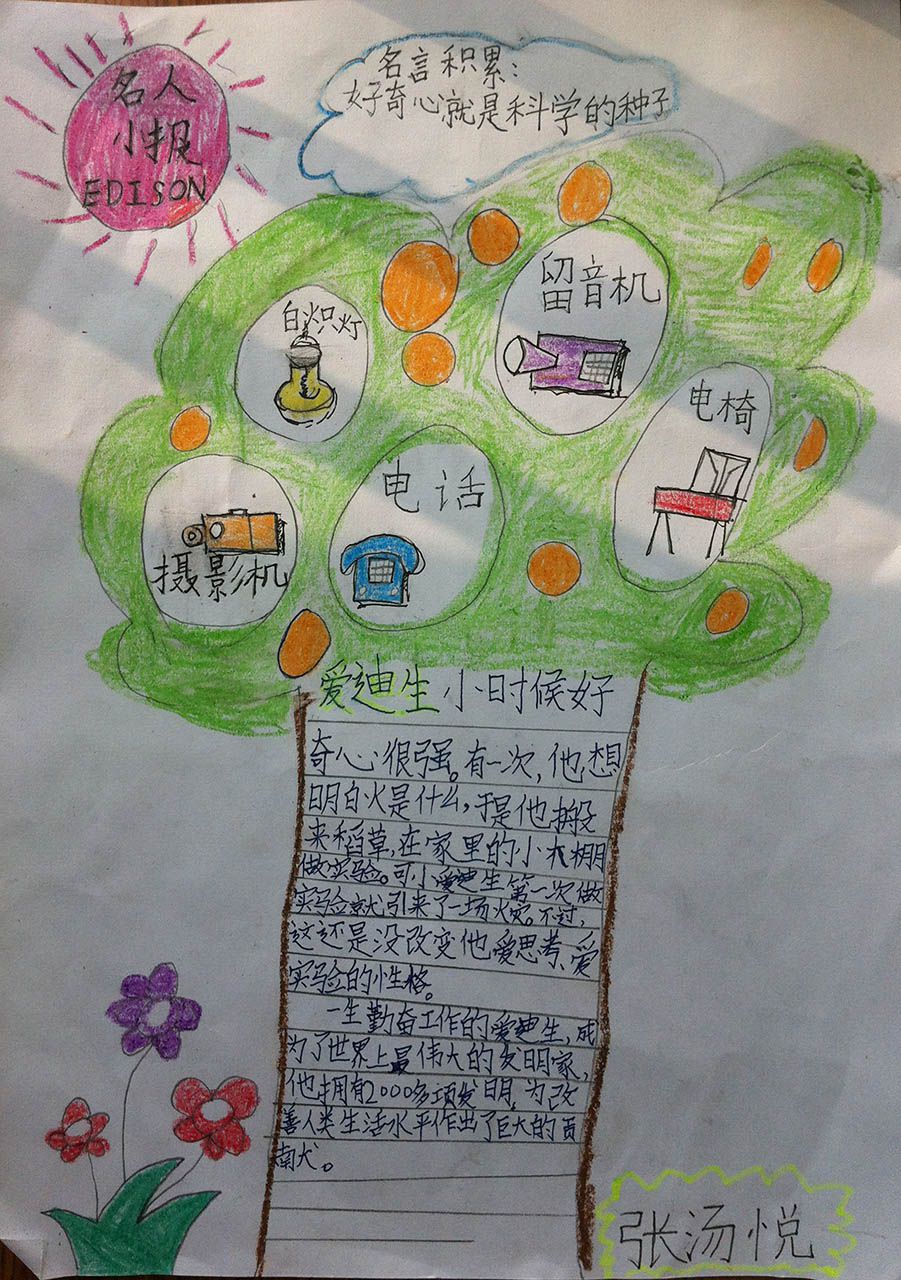 名人
小报
EDISON
名言积累:
好奇心就是科学的种子
白炽灯
留音机
电椅
电话
摄影机
爱迪生小时候好
奇心很强。有一次,他想
明白火是什么,于是他搬
来稻草,在家里的小木棚
做实验。可小爱迪生第一次做
实验就引来了一场火灾。不过,
这还是没改变他爱思考、爱
实验的性格。
一生勤奋工作的爱迪生,成
为了世界上最伟大的发明家,
他拥有2000多项发明,为改
善人类生活水平作出了巨大的贡
献。
张汤悦